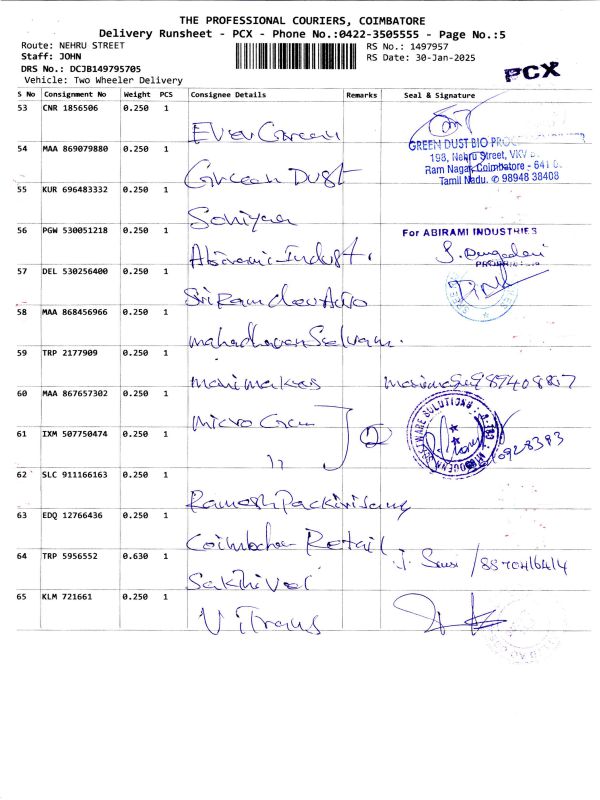 THE PROFESSIONAL COURIERS, COIMBATORE
Delivery Runsheet - PCX - Phone No.:0422-3505555 - Page No.:5
Route: NEHRU STREET
RS No.: 1497957
Staff: JOHN
RS Date: 30-Jan-2025
DRS No.: DCJB149795705
PCX
Vehicle: Two Wheeler Delivery
S No Consignment No Weight PCS Consignee Details Remarks Seal & Signature
53 CNR 1856506 0.250 1
Ever Green
54 MAA 869079880 0.250 1
Green Dust
GREEN DUST BIO
198, Nehru Street, VKV
Ram Nagar, Coimbatore - 641
Tamil Nadu. ✆ 98948 38408
55 KUR 696483332 0.250 1
Soniyaa
56 PGW 530051218 0.250 1
Abirami Indust.
For ABIRAMI INDUSTRIES
57 DEL 530256400 0.250 1
Sri Ramdev Auto
58 MAA 868456966 0.250 1
mahadhavan Selvam.
59 TRP 2177909 0.250 1
60 MAA 867657302 0.250 1
Micro Gen
SOFTWARE SOLUTIONS
61 IXM 507750474 0.250 1
11
2
62 SLC 911166163 0.250 1
63 EDQ 12766436 0.250 1
Coimbatore Retail
64 TRP 5956552 0.630 1
Sakhivel
65 KLM 721661 0.250 1
V Trans